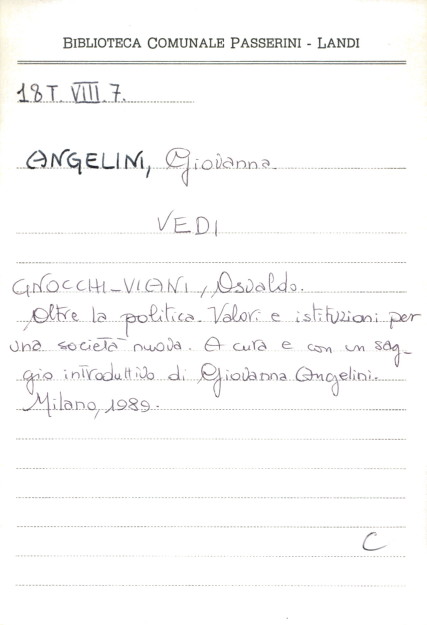 BIBLIOTECA COMUNALE PASSERINI - LANDI
18 T. VIII. 7.
ANGELINI, Giovanna.
VEDI
GNOCCHI-VIANI, Osvaldo.
Oltre la politica. Valori e istituzioni per
una società nuova. A cura e con un sag-
gio introduttivo di Giovanna Angelini.
Milano, 1989.
C